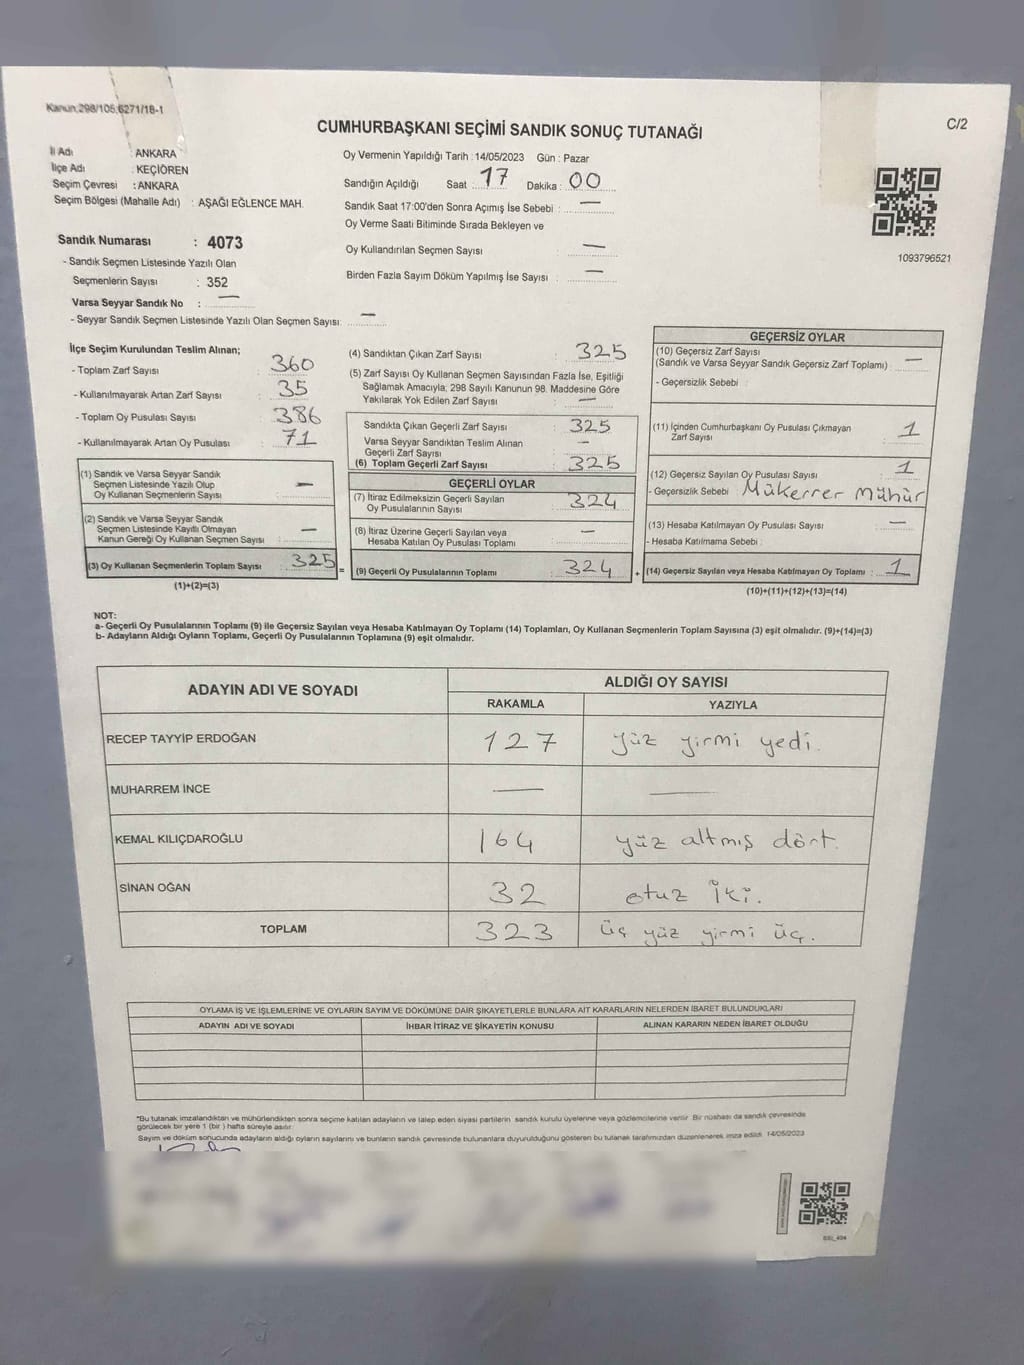 Kanun:298/105;6271/18-1
C/2
CUMHURBAŞKANI SEÇİMİ SANDIK SONUÇ TUTANAĞI
İl Adı : ANKARA
İlçe Adı : KEÇİÖREN
Seçim Çevresi : ANKARA
Seçim Bölgesi (Mahalle Adı) : AŞAĞI EĞLENCE MAH.
Sandık Numarası : 4073
- Sandık Seçmen Listesinde Yazılı Olan
Seçmenlerin Sayısı : 352
Varsa Seyyar Sandık No : —
- Seyyar Sandık Seçmen Listesinde Yazılı Olan Seçmen Sayısı: —
Oy Vermenin Yapıldığı Tarih : 14/05/2023 Gün : Pazar
Sandığın Açıldığı Saat : 17 Dakika : 00
Sandık Saat 17:00'den Sonra Açımış İse Sebebi : —
Oy Verme Saati Bitiminde Sırada Bekleyen ve
Oy Kullandırılan Seçmen Sayısı —
Birden Fazla Sayım Döküm Yapılmış İse Sayısı : —
1093796521
İlçe Seçim Kurulundan Teslim Alınan;
- Toplam Zarf Sayısı : 360
- Kullanılmayarak Artan Zarf Sayısı : 35
- Toplam Oy Pusulası Sayısı : 386
- Kullanılmayarak Artan Oy Pusulası : 71
(1) Sandık ve Varsa Seyyar Sandık
Seçmen Listesinde Yazılı Olup
Oy Kullanan Seçmenlerin Sayısı : —
(2) Sandık ve Varsa Seyyar Sandık
Seçmen Listesinde Kayıtlı Olmayan
Kanun Gereği Oy Kullanan Seçmen Sayısı : —
(3) Oy Kullanan Seçmenlerin Toplam Sayısı : 325
(1)+(2)=(3)
(4) Sandıktan Çıkan Zarf Sayısı : 325
(5) Zarf Sayısı Oy Kullanan Seçmen Sayısından Fazla İse, Eşitliği
Sağlamak Amacıyla; 298 Sayılı Kanunun 98. Maddesine Göre
Yakılarak Yok Edilen Zarf Sayısı : —
Sandıkta Çıkan Geçerli Zarf Sayısı : 325
Varsa Seyyar Sandıktan Teslim Alınan
Geçerli Zarf Sayısı : —
(6) Toplam Geçerli Zarf Sayısı : 325
GEÇERLİ OYLAR
(7) İtiraz Edilmeksizin Geçerli Sayılan
Oy Pusulalarının Sayısı : 324
(8) İtiraz Üzerine Geçerli Sayılan veya
Hesaba Katılan Oy Pusulası Toplamı : —
= (9) Geçerli Oy Pusulalarının Toplamı : 324
GEÇERSİZ OYLAR
(10) Geçersiz Zarf Sayısı
(Sandık ve Varsa Seyyar Sandık Geçersiz Zarf Toplamı) : —
- Geçersizlik Sebebi :
(11) İçinden Cumhurbaşkanı Oy Pusulası Çıkmayan
Zarf Sayısı : 1
(12) Geçersiz Sayılan Oy Pusulası Sayısı : 1
- Geçersizlik Sebebi : Mükerrer Mühür
(13) Hesaba Katılmayan Oy Pusulası Sayısı : —
- Hesaba Katılmama Sebebi :
+ (14) Geçersiz Sayılan veya Hesaba Katılmayan Oy Toplamı : 1
(10)+(11)+(12)+(13)=(14)
NOT:
a- Geçerli Oy Pusulalarının Toplamı (9) ile Geçersiz Sayılan veya Hesaba Katılmayan Oy Toplamı (14) Toplamları, Oy Kullanan Seçmenlerin Toplam Sayısına (3) eşit olmalıdır. (9)+(14)=(3)
b- Adayların Aldığı Oyların Toplamı, Geçerli Oy Pusulalarının Toplamına (9) eşit olmalıdır.
ADAYIN ADI VE SOYADI ALDIĞI OY SAYISI
RAKAMLA YAZIYLA
RECEP TAYYİP ERDOĞAN 127 yüz yirmi yedi.
MUHARREM İNCE — —
KEMAL KILIÇDAROĞLU 164 yüz altmış dört.
SİNAN OĞAN 32 otuz iki.
TOPLAM 323 üç yüz yirmi üç.
OYLAMA İŞ VE İŞLEMLERİNE VE OYLARIN SAYIM VE DÖKÜMÜNE DAİR ŞİKAYETLERLE BUNLARA AİT KARARLARIN NELERDEN İBARET BULUNDUKLARI
ADAYIN ADI VE SOYADI İHBAR İTİRAZ VE ŞİKAYETİN KONUSU ALINAN KARARIN NEDEN İBARET OLDUĞU
*Bu tutanak imzalandıktan ve mühürlendikten sonra seçime katılan adayların ve talep eden siyasi partilerin sandık kurulu üyelerine veya gözlemcilerine verilir. Bir nüshası da sandık çevresinde
görülecek bir yere 1 (bir) hafta süreyle asılır.
Sayım ve döküm sonucunda adayların aldığı oyların sayılarını ve bunların sandık çevresinde bulunanlara duyurulduğunu gösteren bu tutanak tarafımızdan düzenlenerek imza edildi. 14/05/2023